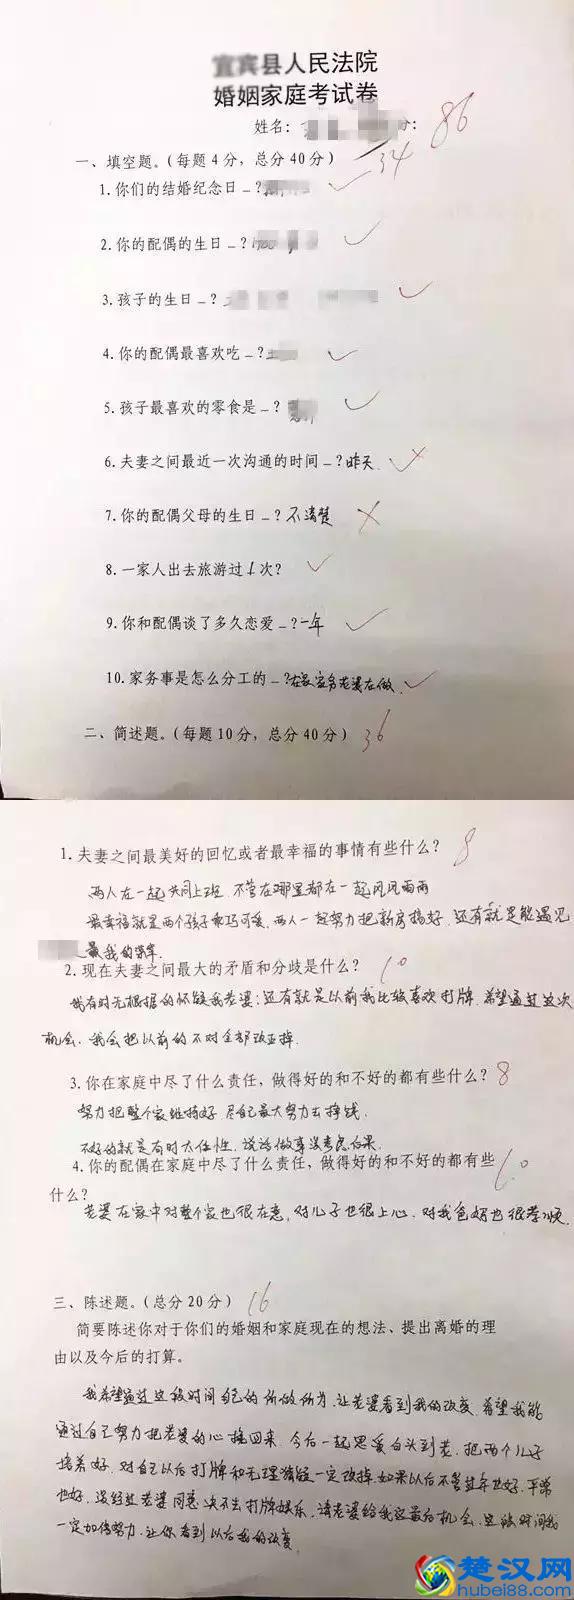 县人民法院
婚姻家庭考试卷
姓名: 分: 86
一、填空题。(每题4分,总分40分) 34
1.你们的结婚纪念日_?
2.你的配偶的生日_?
3.孩子的生日_?
4.你的配偶最喜欢吃_?
5.孩子最喜欢的零食是_?
6.夫妻之间最近一次沟通的时间_?昨天.
7.你的配偶父母的生日_?不清楚
8.一家人出去旅游过1次?
9.你和配偶谈了多久恋爱_?一年
10.家务事是怎么分工的_?在家务老婆在做.
二、简述题。(每题10分,总分40分) 36
1.夫妻之间最美好的回忆或者最幸福的事情有些什么? 8
两人在一起共同上班,不管在哪里都在一起风风雨雨
最幸福就是两个孩子乖巧可爱,两人一起努力把新房搞好,还有就是能遇见
是我的
2.现在夫妻之间最大的矛盾和分歧是什么? 10
我有时无根据的怀疑我老婆;还有就是以前我比较喜欢打牌.希望通过这次
机会.我会把以前的不对全部改正掉.
3.你在家庭中尽了什么责任,做得好的和不好的都有些什么? 8
努力把整个家维持好,尽自己最大努力去挣钱.
不好的就是有时太任性,说话做事没考虑后果.
4.你的配偶在家庭中尽了什么责任,做得好的和不好的都有些 10
什么?
老婆在家中对整个家也很在意,对儿子也很上心.对我爸妈也很孝顺.
三、陈述题。(总分20分) 16
简要陈述你对于你们的婚姻和家庭现在的想法、提出离婚的理
由以及今后的打算。
我希望通过这段时间自己的所做所为,让老婆看到我的改变.希望我能
通过自己努力把老婆的心挽回来.今后一起恩爱白头到老.把两个儿子
培养好.对自己以后打牌和无理猜疑一定改掉.如果以后不管过年也好.平常
也好.没经过老婆同意决不去打牌娱乐.请老婆给我这最后机会.这段时间我
一定加倍努力.让你看到以后我的改变.
楚汉网
hubei88.com